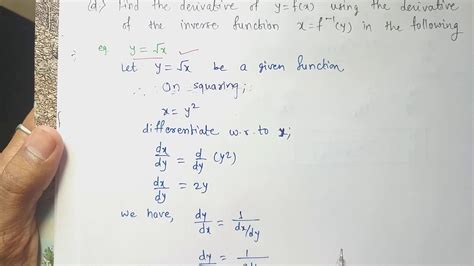 (d) Find the derivative of y=f(x) using the derivative
of the inverse function x=f⁻¹(y) in the following
eg. y=√x
Let y=√x be a given function
∴ On squaring;
x = y²
differentiate w.r.to
dx/dy = d/dy (y²)
dx/dy = 2y
we have, dy/dx = 1/dx/dy
dy = 1